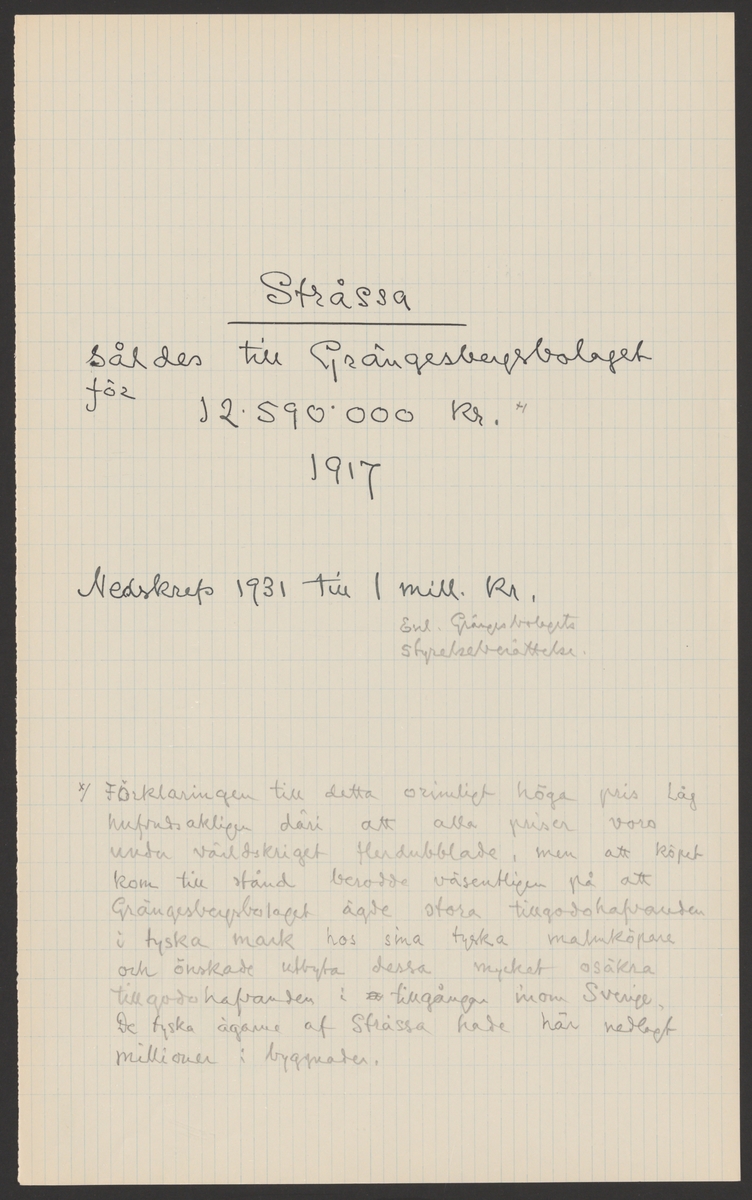 Stråssa
såldes till Grängesbergsbolaget
för
12.590.000 Kr. x/
1917
Nedskrefs 1931 till 1 mill. Kr.
Enl. Grängesbolagets
styrelseberättelse.
x/ Förklaringen till detta orimligt höga pris låg
hufvudsakligen däri att alla priser voro
under världskriget flerdubblade, men att köpet
kom till stånd berodde väsentligen på att
Grängesbergsbolaget ägde stora tillgodohafvanden
i tyska mark hos sina tyska malmköpare
och önskade utbyta dessa mycket osäkra
tillgodohafvanden i tillgångar inom Sverige.
De tyska ägarne af Stråssa hade här nedlagt
millioner i byggnader.